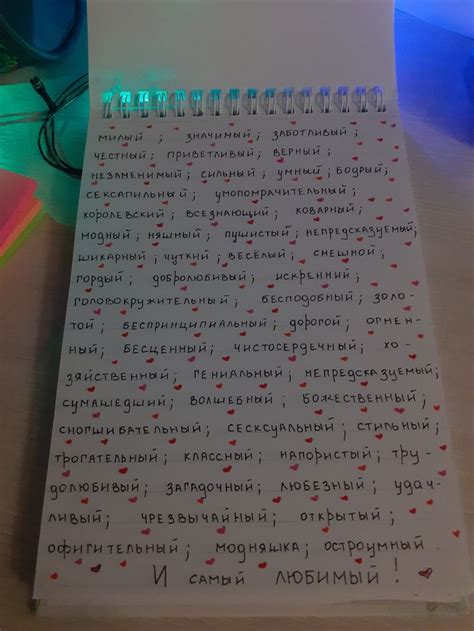 милый; значимый; заботливый;
честный; приветливый; верный;
незаменимый; сильный; умный; бодрый;
сексапильный; умопомрачительный;
королевский; всезнающий; коварный;
модный; няшный; пушистый; непредсказуемый;
шикарный; чуткий; весёлый; смешной;
гордый; добролюбивый; искренний;
головокружительный; бесподобный; золо-
той; беспринципиальный; дорогой; огнен-
ный; бесценный; чистосердечный; хо-
зяйственный; гениальный; непредсказуемый;
сумашедший; волшебный; божественный;
сногшибательный; сесксуальный; стильный;
трогательный; классный; напористый; тру-
долюбивый; загадочный; любезный; удач-
ливый; чрезвычайный; открытый;
офигительный; модняшка; остроумный.
И самый любимый!